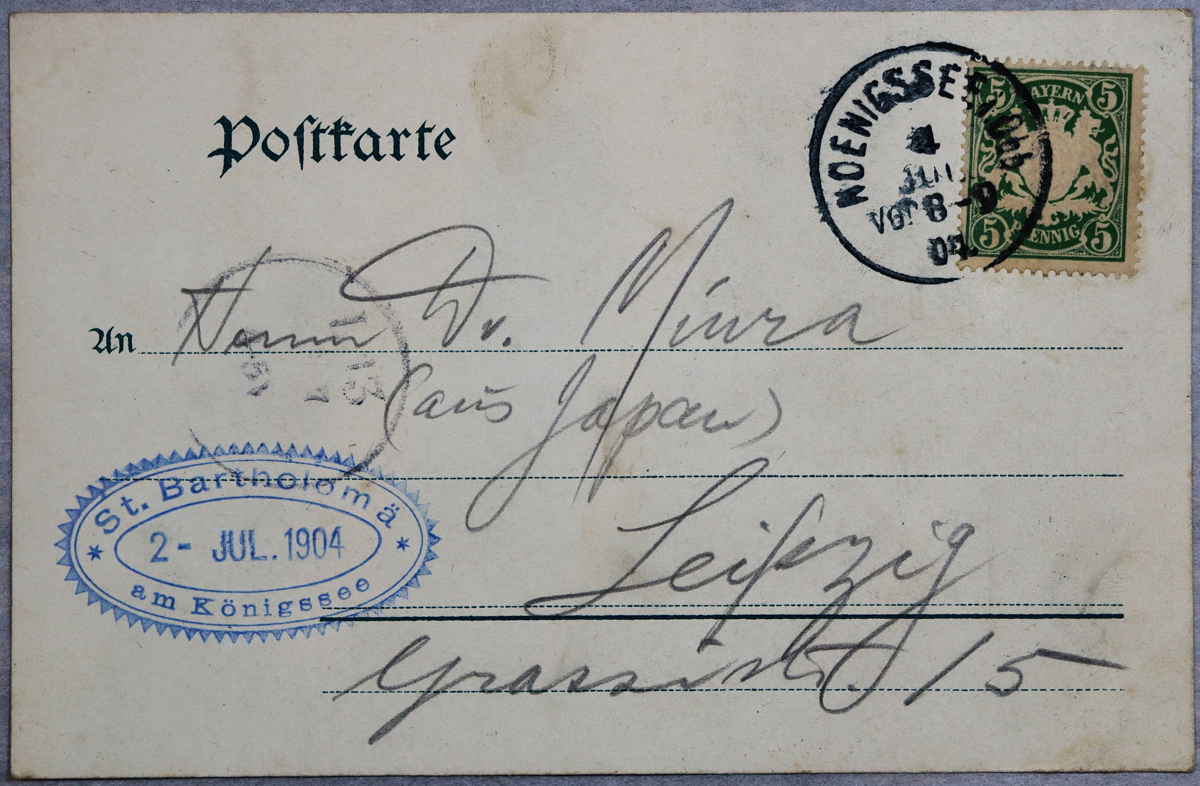 Postkarte
KOENIGSSEE
4
JUL
VOR 8-9
04
5 BAYERN 5
5 PFENNIG 5
An Herrn Dr. Miura
(aus Japan)
Leipzig
Grassistr. 15
St. Bartholomä
2- JUL. 1904
am Königssee